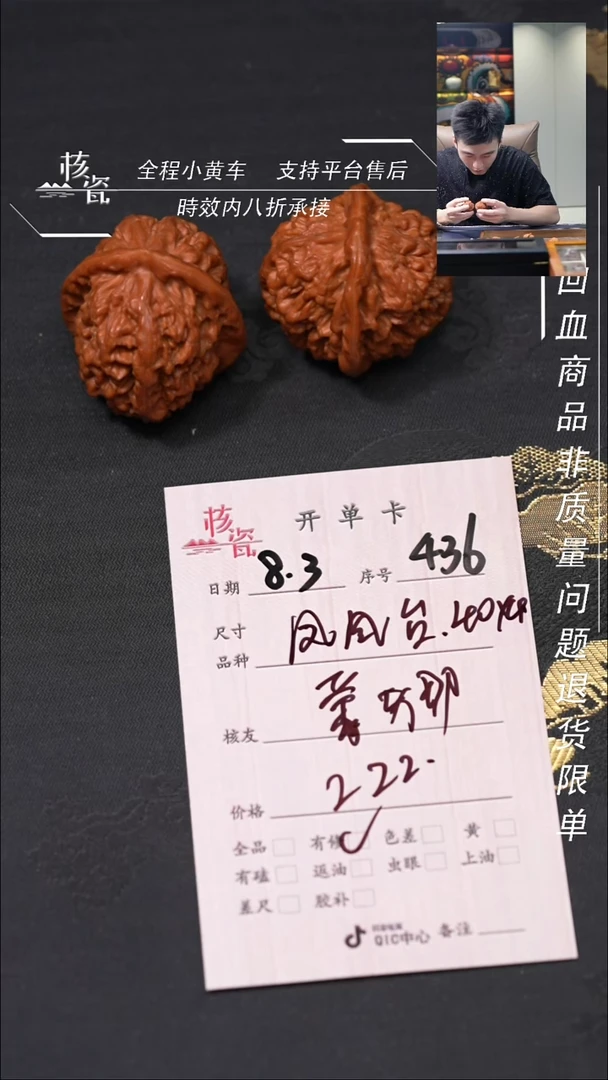 核瓷
全程小黄车 支持平台售后
時效内八折承接
回血商品非质量问题退货限单
核瓷
开单卡
日期 8.3 序号 436
尺寸
品种 凤凰台.40
核友
价格 222.
全品 有修 色差 黄
有磕 返油 虫眼 上油
差尺 胶补
QIC中心 备注